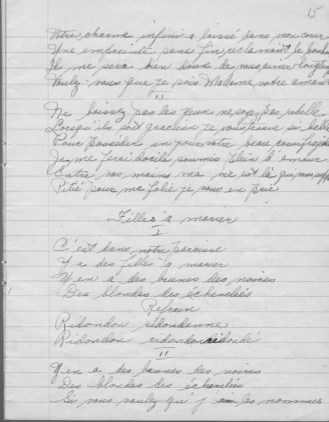 15
Votre charme infini a laissé dans mon cœur
Une empreinte sans fin, réclamant le bonheur
Il me sera bien doux de vous aimer longtemps
Voulez vous que je sois Madame votre amant
II
Ne baissez pas les yeux ne soyez pas rebelle
Lorsqu'ils sont gracieux je vous trouve si belle
Pour posséder un jour votre beau
Je me ferai docile soumis plein d'amour
Entre vos mains ma vie est là qui
Pitié pour ma folie je vous en prie
Filles à marier
I
C'est dans notre paroisse
Y a des filles à marier
Y en a des brunes des noires
Des blondes des échevelées
Refrain
Ridondon ridondenne
Ridondon
II
Y en a des brunes des noires
Des blondes des échevelées
Si vous voulez qu'j les nommes